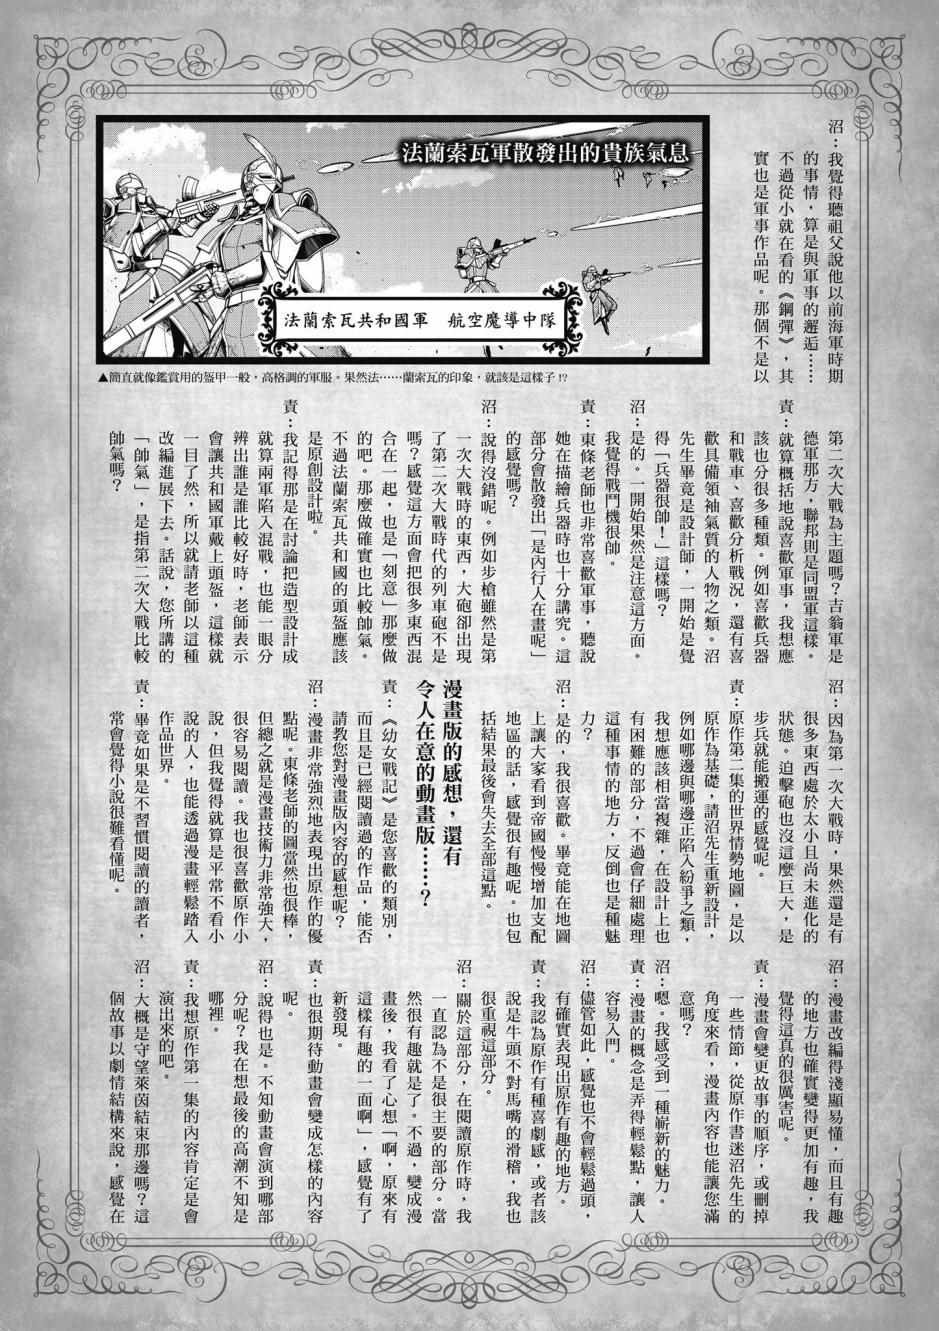 沼：我覺得聽祖父說他以前海軍時期
的事情，算是與軍事的邂逅……
不過從小就在看的《鋼彈》，其
實也是軍事作品呢。那個不是以
法蘭索瓦軍散發出的貴族氣息
法蘭索瓦共和國軍　航空魔導中隊
▲簡直就像鑑賞用的盔甲一般，高格調的軍服。果然法……蘭索瓦的印象，就該是這樣子!?
第二次大戰為主題嗎？吉翁軍是
德軍那方，聯邦則是同盟軍這樣。
責：就算概括地說喜歡軍事，我想應
該也分很多種類。例如喜歡兵器
和戰車、喜歡分析戰況，還有喜
歡具備領袖氣質的人物之類。沼
先生畢竟是設計師，一開始是覺
得「兵器很帥！」這樣嗎？
沼：是的。一開始果然是注意這方面。
我覺得戰鬥機很帥。
責：東條老師也非常喜歡軍事，聽說
她在描繪兵器時也十分講究。這
部分會散發出「是內行人在畫呢」
的感覺嗎？
沼：說得沒錯呢。例如步槍雖然是第
一次大戰時的東西，大砲卻出現
了第二次大戰時代的列車砲不是
嗎？感覺這方面會把很多東西混
合在一起，也是「刻意」那麼做
的吧。那麼做確實也比較帥氣。
不過法蘭索瓦共和國的頭盔應該
是原創設計啦。
責：我記得那是在討論把造型設計成
就算兩軍陷入混戰，也能一眼分
辨出誰是誰比較好時，老師表示
會讓共和國軍戴上頭盔，這樣就
一目了然，所以就請老師以這種
改編進展下去。話說，您所講的
「帥氣」，是指第二次大戰比較
帥氣嗎？
沼：因為第一次大戰時，果然還是有
很多東西處於太小且尚未進化的
狀態。迫擊砲也沒這麼巨大，是
步兵就能搬運的感覺呢。
責：原作第二集的世界情勢地圖，是以
原作為基礎，請沼先生重新設計，
例如哪邊與哪邊正陷入紛爭之類，
我想應該相當複雜，在設計上也
有困難的部分，不過會仔細處理
這種事情的地方，反倒也是種魅
力？
沼：是的，我很喜歡。畢竟能在地圖
上讓大家看到帝國慢慢增加支配
地區的話，感覺很有趣呢。也包
括結果最後會失去全部這點。
漫畫版的感想，還有
令人在意的動畫版……？
責：《幼女戰記》是您喜歡的類別，
而且是已經閱讀過的作品，能否
請教您對漫畫版內容的感想呢？
沼：漫畫非常強烈地表現出原作的優
點呢。東條老師的圖當然也很棒，
但總之就是漫畫技術力非常強大，
很容易閱讀。我也很喜歡原作小
說，但我覺得就算是平常不看小
說的人，也能透過漫畫輕鬆踏入
作品世界。
責：畢竟如果是不習慣閱讀的讀者，
常會覺得小說很難看懂呢。
沼：漫畫改編得淺顯易懂，而且有趣
的地方也確實變得更加有趣，我
覺得這真的很厲害呢。
責：漫畫會變更故事的順序，或刪掉
一些情節，從原作書迷沼先生的
角度來看，漫畫內容也能讓您滿
意嗎？
沼：嗯。我感受到一種嶄新的魅力。
責：漫畫的概念是弄得輕鬆點，讓人
容易入門。
沼：儘管如此，感覺也不會輕鬆過頭，
有確實表現出原作有趣的地方。
責：我認為原作有種喜劇感，或者該
說是牛頭不對馬嘴的滑稽，我也
很重視這部分。
沼：關於這部分，在閱讀原作時，我
一直認為不是很主要的部分。當
然很有趣就是了。不過，變成漫
畫後，我看了心想「啊，原來有
這樣有趣的一面啊」，感覺有了
新發現。
責：也很期待動畫會變成怎樣的內容
呢。
沼：說得也是。不知動畫會演到哪部
分呢？我在想最後的高潮不知是
哪裡。
責：我想原作第一集的內容肯定是會
演出來的吧。
沼：大概是守望萊茵結束那邊嗎？這
個故事以劇情結構來說，感覺在